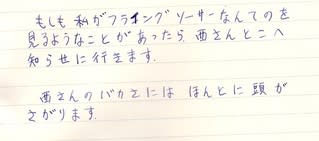 もしも私がフライングソーサーなんてのを
見るようなことがあったら 西さんとこへ
知らせに行きます.
西さんのバカさには ほんとに頭が
さがります.